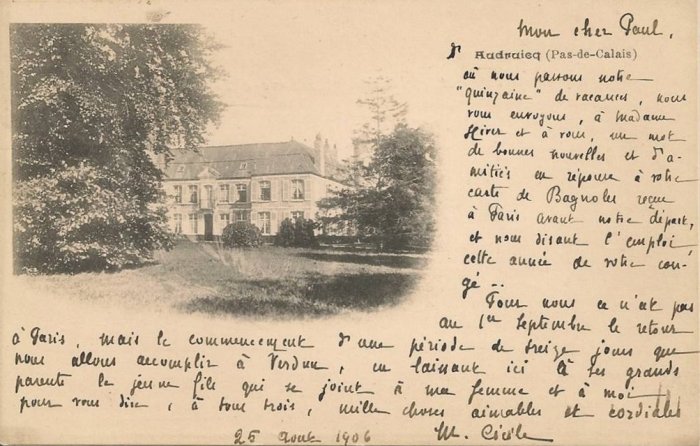 Mon cher Paul,
d'Audruicq (Pas-de-Calais)
où nous passons notre
"quinzaine" de vacances, nous
vous envoyons, à Madame
et à vous, un mot
de bonnes nouvelles et d'a-
mitiés en réponse à votre
carte de Bagnoles reçue
à Paris avant notre départ,
et nous disant l'emploi
cette année de votre con-
gé..
Pour nous ce n'est pas
au 1er Septembre le retour
à Paris, mais le commencement d'une période de treize jours que
nous allons accomplir à Verdun, en laissant ici à ses grands
parents le jeune fils qui se joint à ma femme et à moi
pour vous dire, à tous trois, mille choses aimables et cordiales
25 Aout 1906